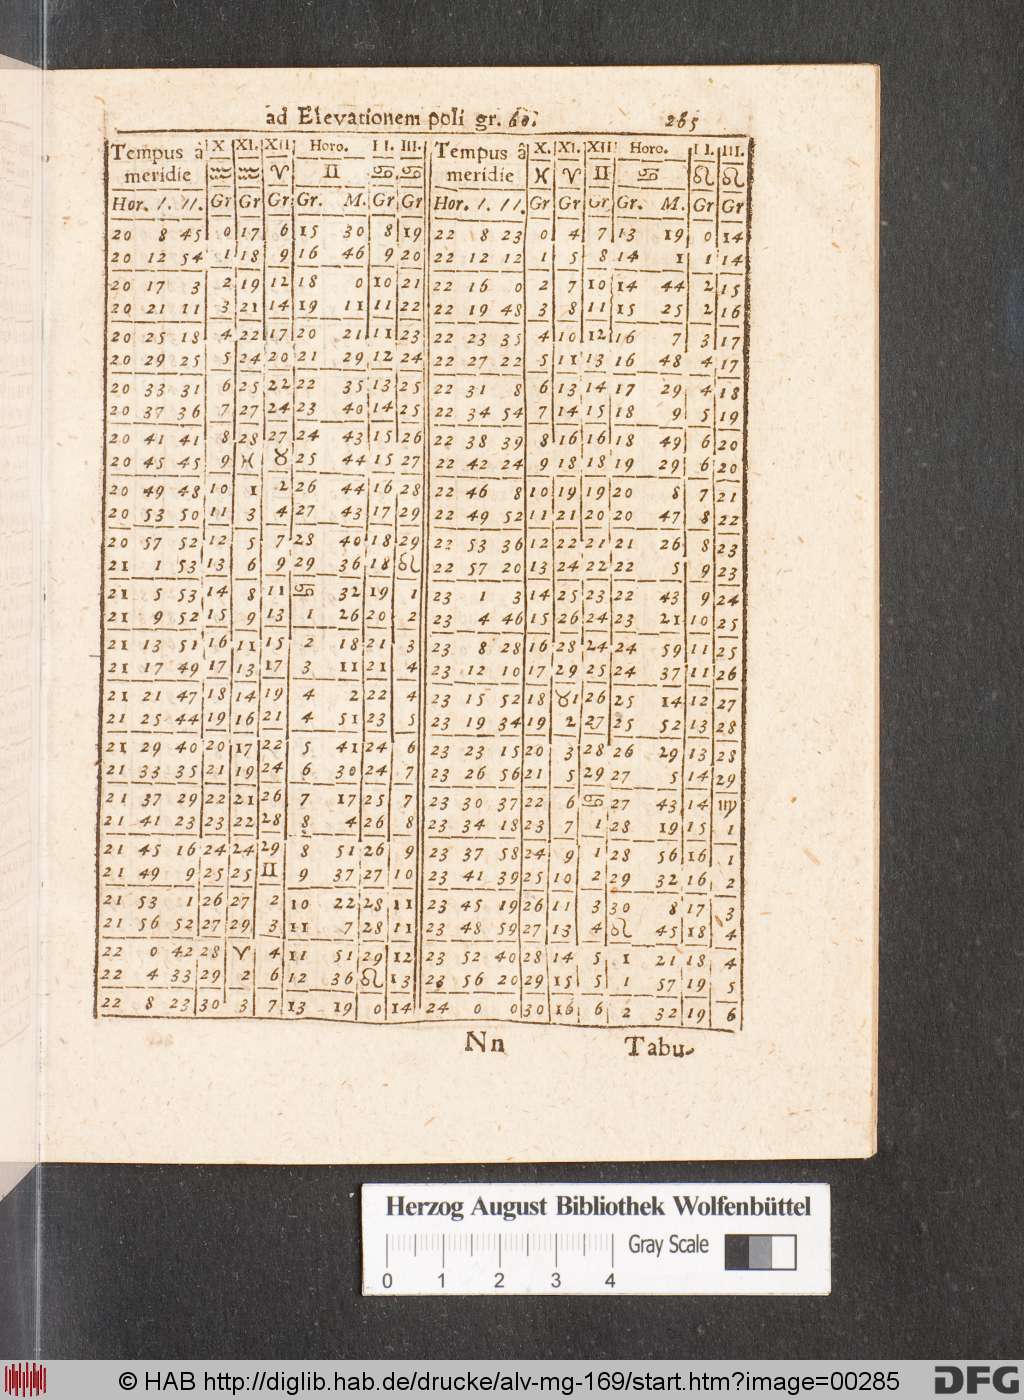 ad Elevationem poli gr. 60. 285
Tempus à X XI. XII Horo. II. III. Tempus â X. XI. XII Horo. II. III.
meridie ♒ ♒ ♈ ♊ ♋ ♋ meridie ♓ ♈ ♊ ♋ ♌ ♌
Hor. I. II. Gr Gr Gr Gr. M. Gr Gr Hor. I. II. Gr Gr Gr Gr. M. Gr Gr
20 8 45 0 17 6 15 30 8 19 22 8 23 0 4 7 13 19 0 14
20 12 54 1 18 9 16 46 9 20 22 12 12 1 5 8 14 1 1 14
20 17 3 2 19 12 18 0 10 21 22 16 0 2 7 10 14 44 2 15
20 21 11 3 21 14 19 11 11 22 22 19 48 3 8 11 15 25 2 16
20 25 18 4 22 17 20 21 11 23 22 23 35 4 10 12 16 7 3 17
20 29 25 5 24 20 21 29 12 24 22 27 22 5 11 13 16 48 4 17
20 33 31 6 25 22 22 35 13 25 22 31 8 6 13 14 17 29 4 18
20 37 36 7 27 24 23 40 14 25 22 34 54 7 14 15 18 9 5 19
20 41 41 8 28 27 24 43 15 26 22 38 39 8 16 16 18 49 6 20
20 45 45 9 ♓ ♉ 25 44 15 27 22 42 24 9 18 18 19 29 6 20
20 49 48 10 1 2 26 44 16 28 22 46 8 10 19 19 20 8 7 21
20 53 50 11 3 4 27 43 17 29 22 49 52 11 21 20 20 47 8 22
20 57 52 12 5 7 28 40 18 29 22 53 36 12 22 21 21 26 8 23
21 1 53 13 6 9 29 36 18 ♌ 22 57 20 13 24 22 22 5 9 23
21 5 53 14 8 11 ♋ 32 19 1 23 1 3 14 25 23 22 43 9 24
21 9 52 15 9 13 1 26 20 2 23 4 46 15 26 24 23 21 10 25
21 13 51 16 11 15 2 18 21 3 23 8 28 16 28 24 24 59 11 25
21 17 49 17 13 17 3 11 21 4 23 12 10 17 29 25 24 37 11 26
21 21 47 18 14 19 4 2 22 4 23 15 52 18 ♉1 26 25 14 12 27
21 25 44 19 16 21 4 51 23 5 23 19 34 19 2 27 25 52 13 28
21 29 40 20 17 22 5 41 24 6 23 23 15 20 3 28 26 29 13 28
21 33 35 21 19 24 6 30 24 7 23 26 56 21 5 29 27 5 14 29
21 37 29 22 21 26 7 17 25 7 23 30 37 22 6 ♋ 27 43 14 ♍
21 41 23 23 22 28 8 4 26 8 23 34 18 23 7 1 28 19 15 1
21 45 16 24 24 29 8 51 26 9 23 37 58 24 9 1 28 56 16 1
21 49 9 25 25 ♊ 9 37 27 10 23 41 39 25 10 2 29 32 16 2
21 53 1 26 27 2 10 22 28 11 23 45 19 26 11 3 30 8 17 3
21 56 52 27 29 3 11 7 28 11 23 48 59 27 13 4 ♌ 45 18 4
22 0 42 28 ♈ 4 11 51 29 12 23 52 40 28 14 5 1 21 18 4
22 4 33 29 2 6 12 36 ♌ 13 23 56 20 29 15 5 1 57 19 5
22 8 23 30 3 7 13 19 0 14 24 0 0 30 16 6 2 32 19 6
Nn Tabu-
Herzog August Bibliothek Wolfenbüttel
Gray Scale
0 1 2 3 4
© HAB http://diglib.hab.de/drucke/alv-mg-169/start.htm?image=00285
DFG